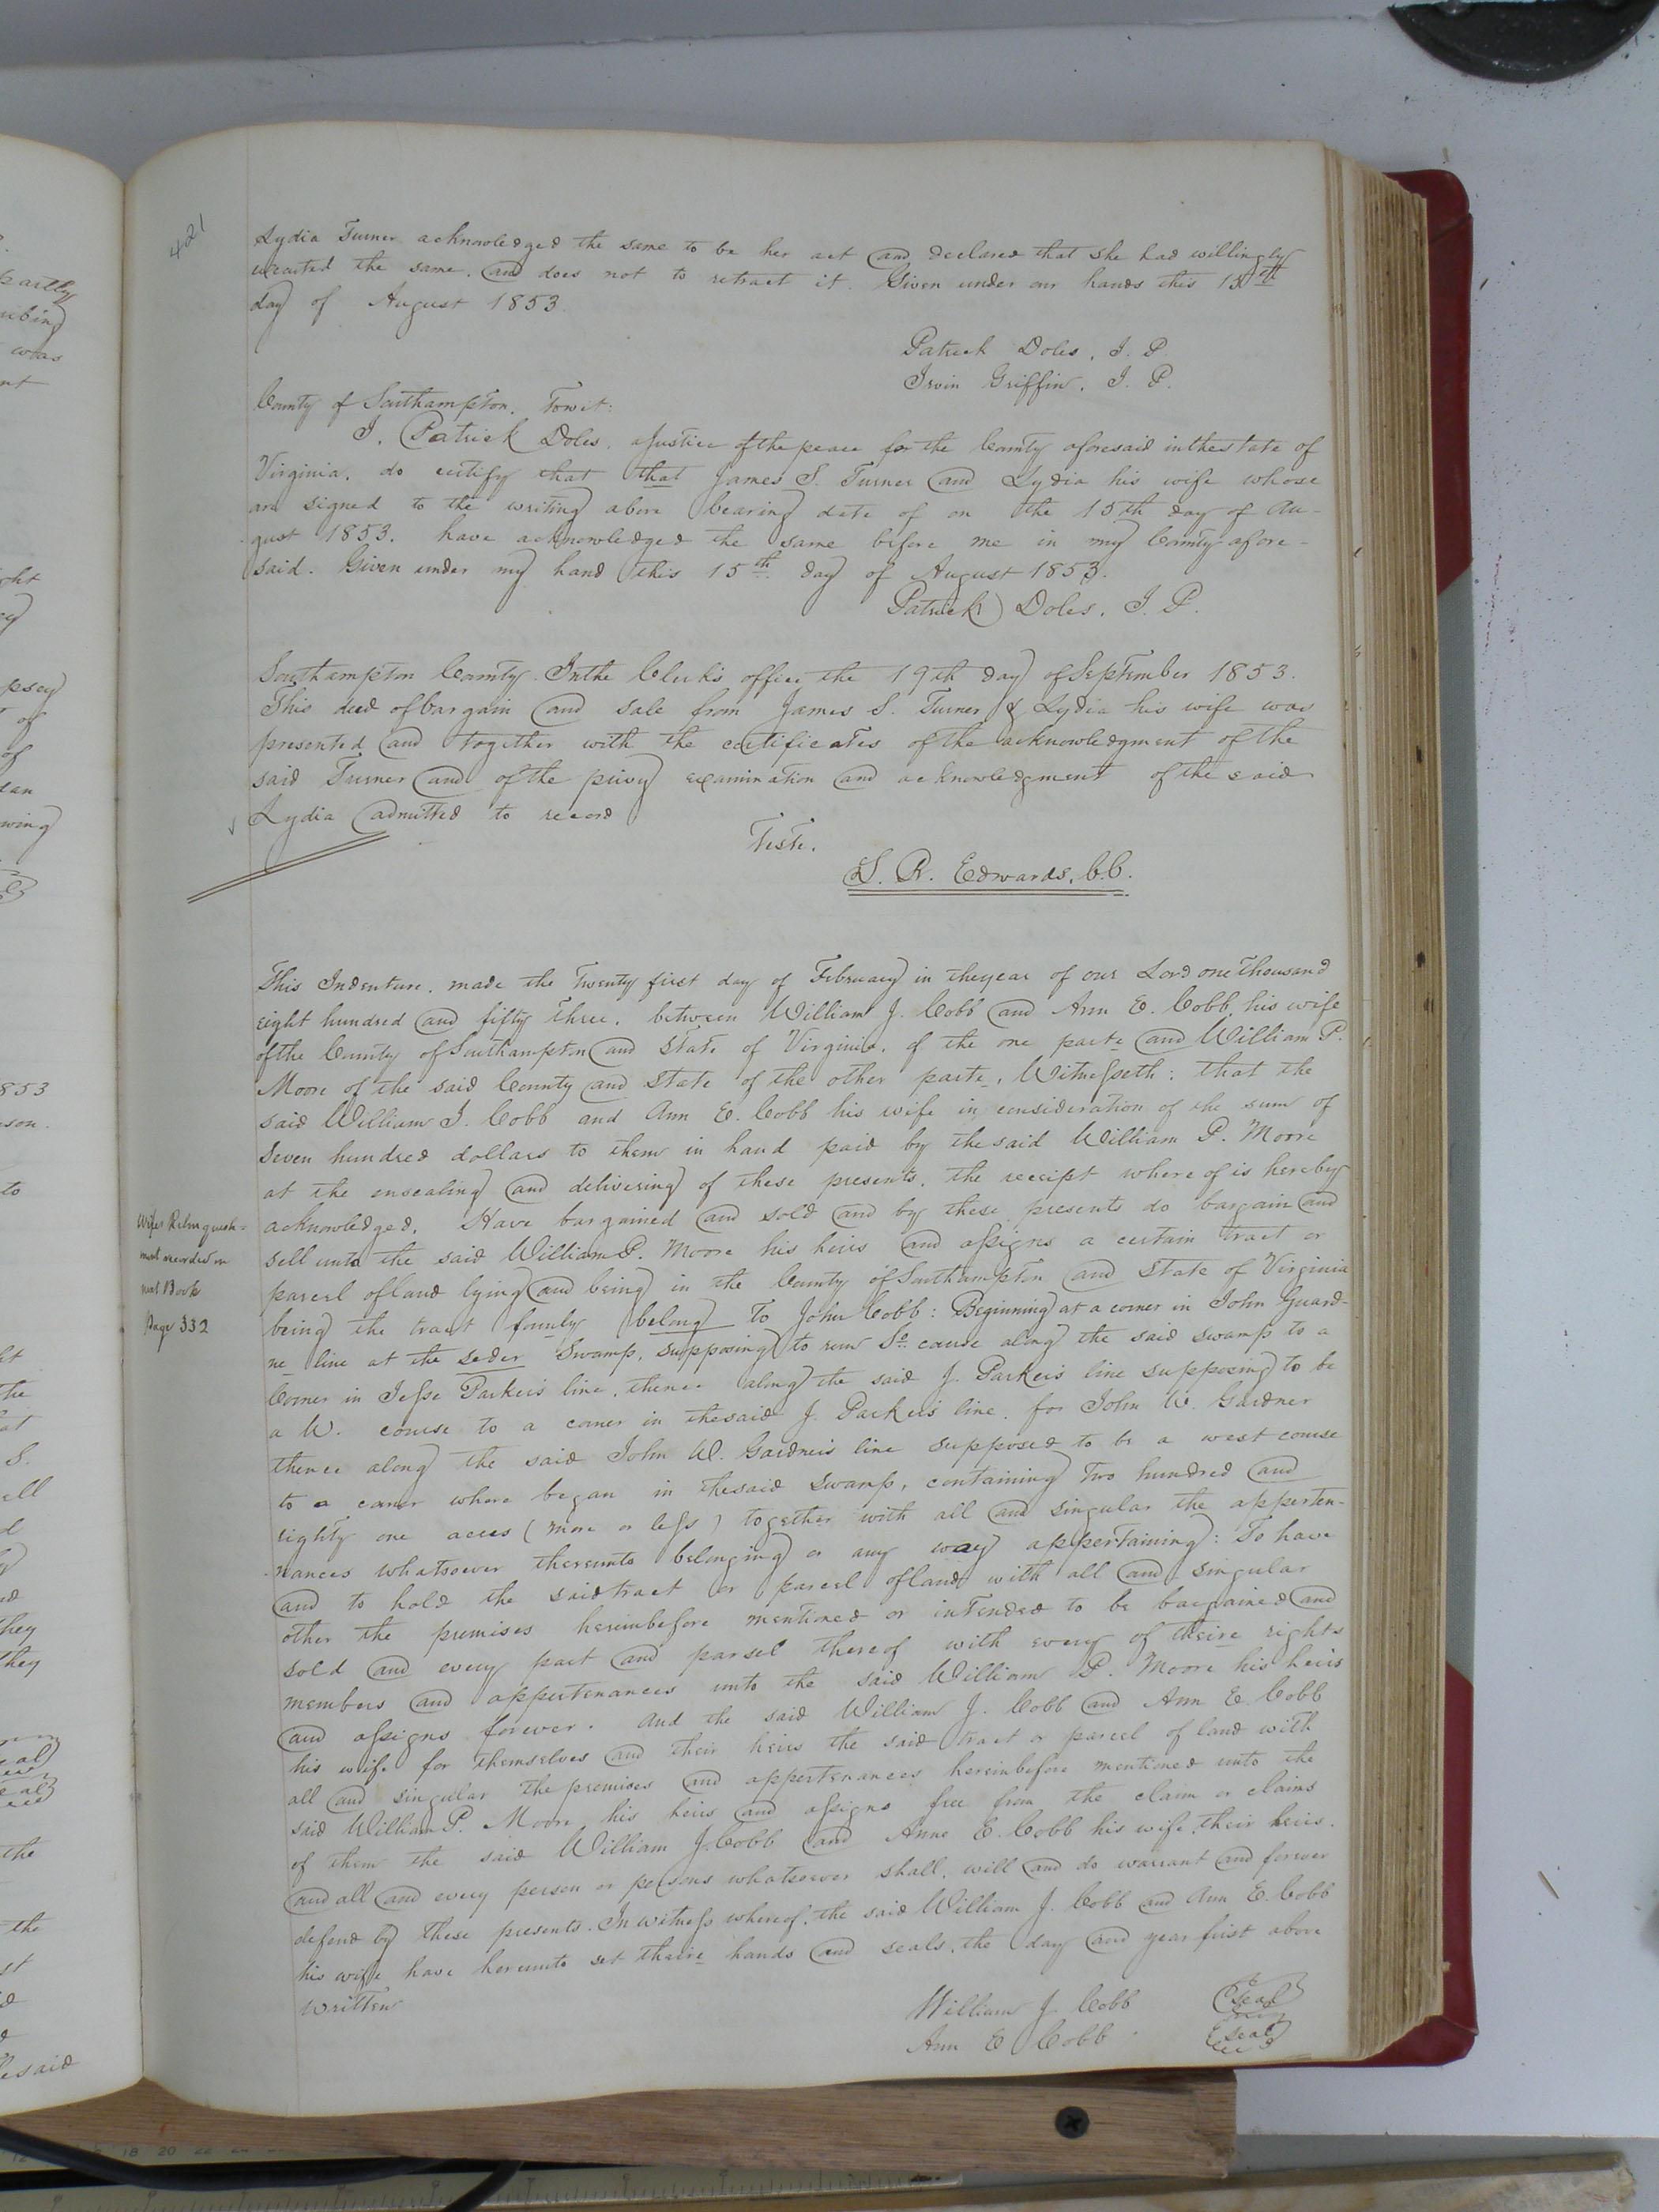 421
Lydia Turner acknowledged the same to be her act and declared that she had willingly
executed the same, and does not to retract it. Given under our hands this 15th
day of August 1853.
Patrick Doles, J. P.
Irvin Griffin, J. P.
County of Southampton, Towit:
I, Patrick Doles, a Justice of the peace for the County aforesaid in the state of
Virginia, do certify that that James S. Turner and Lydia his wife whose
are signed to the writing above bearing date of on the 15th day of Au-
gust 1853. have acknowledged the same before me in my County afore-
said. Given under my hand this 15th day of August 1853.
Patrick Doles, J. P.
Southampton County. In the Clerk's office the 19th day of September 1853.
This deed of bargain and sale from James S. Turner & Lydia his wife was
presented and together with the certificates of the acknowledgment of the
said Turner and of the privy examination and acknowledgment of the said
Lydia admitted to record
Teste.
L. R. Edwards, C.C.
This Indenture, made the Twenty first day of February in the year of our Lord one Thousand
eight hundred and fifty Three, between William J. Cobb and Ann E. Cobb, his wife
of the County of Southampton and State of Virginia, of the one parte and William P.
Moore of the said County and State of the other parte, Witnesseth: that the
said William J. Cobb and Ann E. Cobb his wife in consideration of the sum of
Seven hundred dollars to them in hand paid by the said William P. Moore
at the ensealing and delivering of these presents, the receipt where of is hereby
acknowledged, Have bargained and sold and by these presents do bargain and
sell unto the said William P. Moore his heirs and assigns a certain tract or
parcel of land lying and being in the County of Southampton and State of Virginia
being the tract founly belong to John Cobb: Beginning at a corner in John Guard-
ne line at the seder Swamp, supposing to run So. cause along the said swamp to a
Corner in Jesse Parker's line, thence along the said J. Parker's line supposing to be
a W. course to a corner in the said J. Parker's line, for John W. Gardner
thence along the said John W. Gardner's line supposed to be a west course
to a corner where began in the said swamp, containing Two hundred and
eighty one acres (more or less) together with all and singular the apperten-
nances whatsoever thereunto belonging or any way appertaining: To have
and to hold the said tract or parcel of land with all and singular
other the premises hereinbefore mentioned or intended to be bargained and
sold and every part and parsel thereof with every of theire rights
members and appertenances unto the said William P. Moore his heirs
and assigns forever. And the said William J. Cobb and Ann E. Cobb
his wife for themselves and their heirs the said tract or parcel of land with
all and singular the premises and appertenances hereinbefore mentioned unto the
said William P. Moore his heirs and assigns free from the claim or claims
of them the said William J. Cobb and Anne E. Cobb his wife, their heirs.
and all and every person or persons whatsoever shall, will and do warrant and forever
defend by these presents. In witness whereof, the said William J. Cobb and Ann E. Cobb
his wife have hereunto set theire hands and seals, the day and year first above
written
William J. Cobb Seal
Ann E Cobb Seal
Wifes Relinquish-
ment recorded in
next Book
Page 332